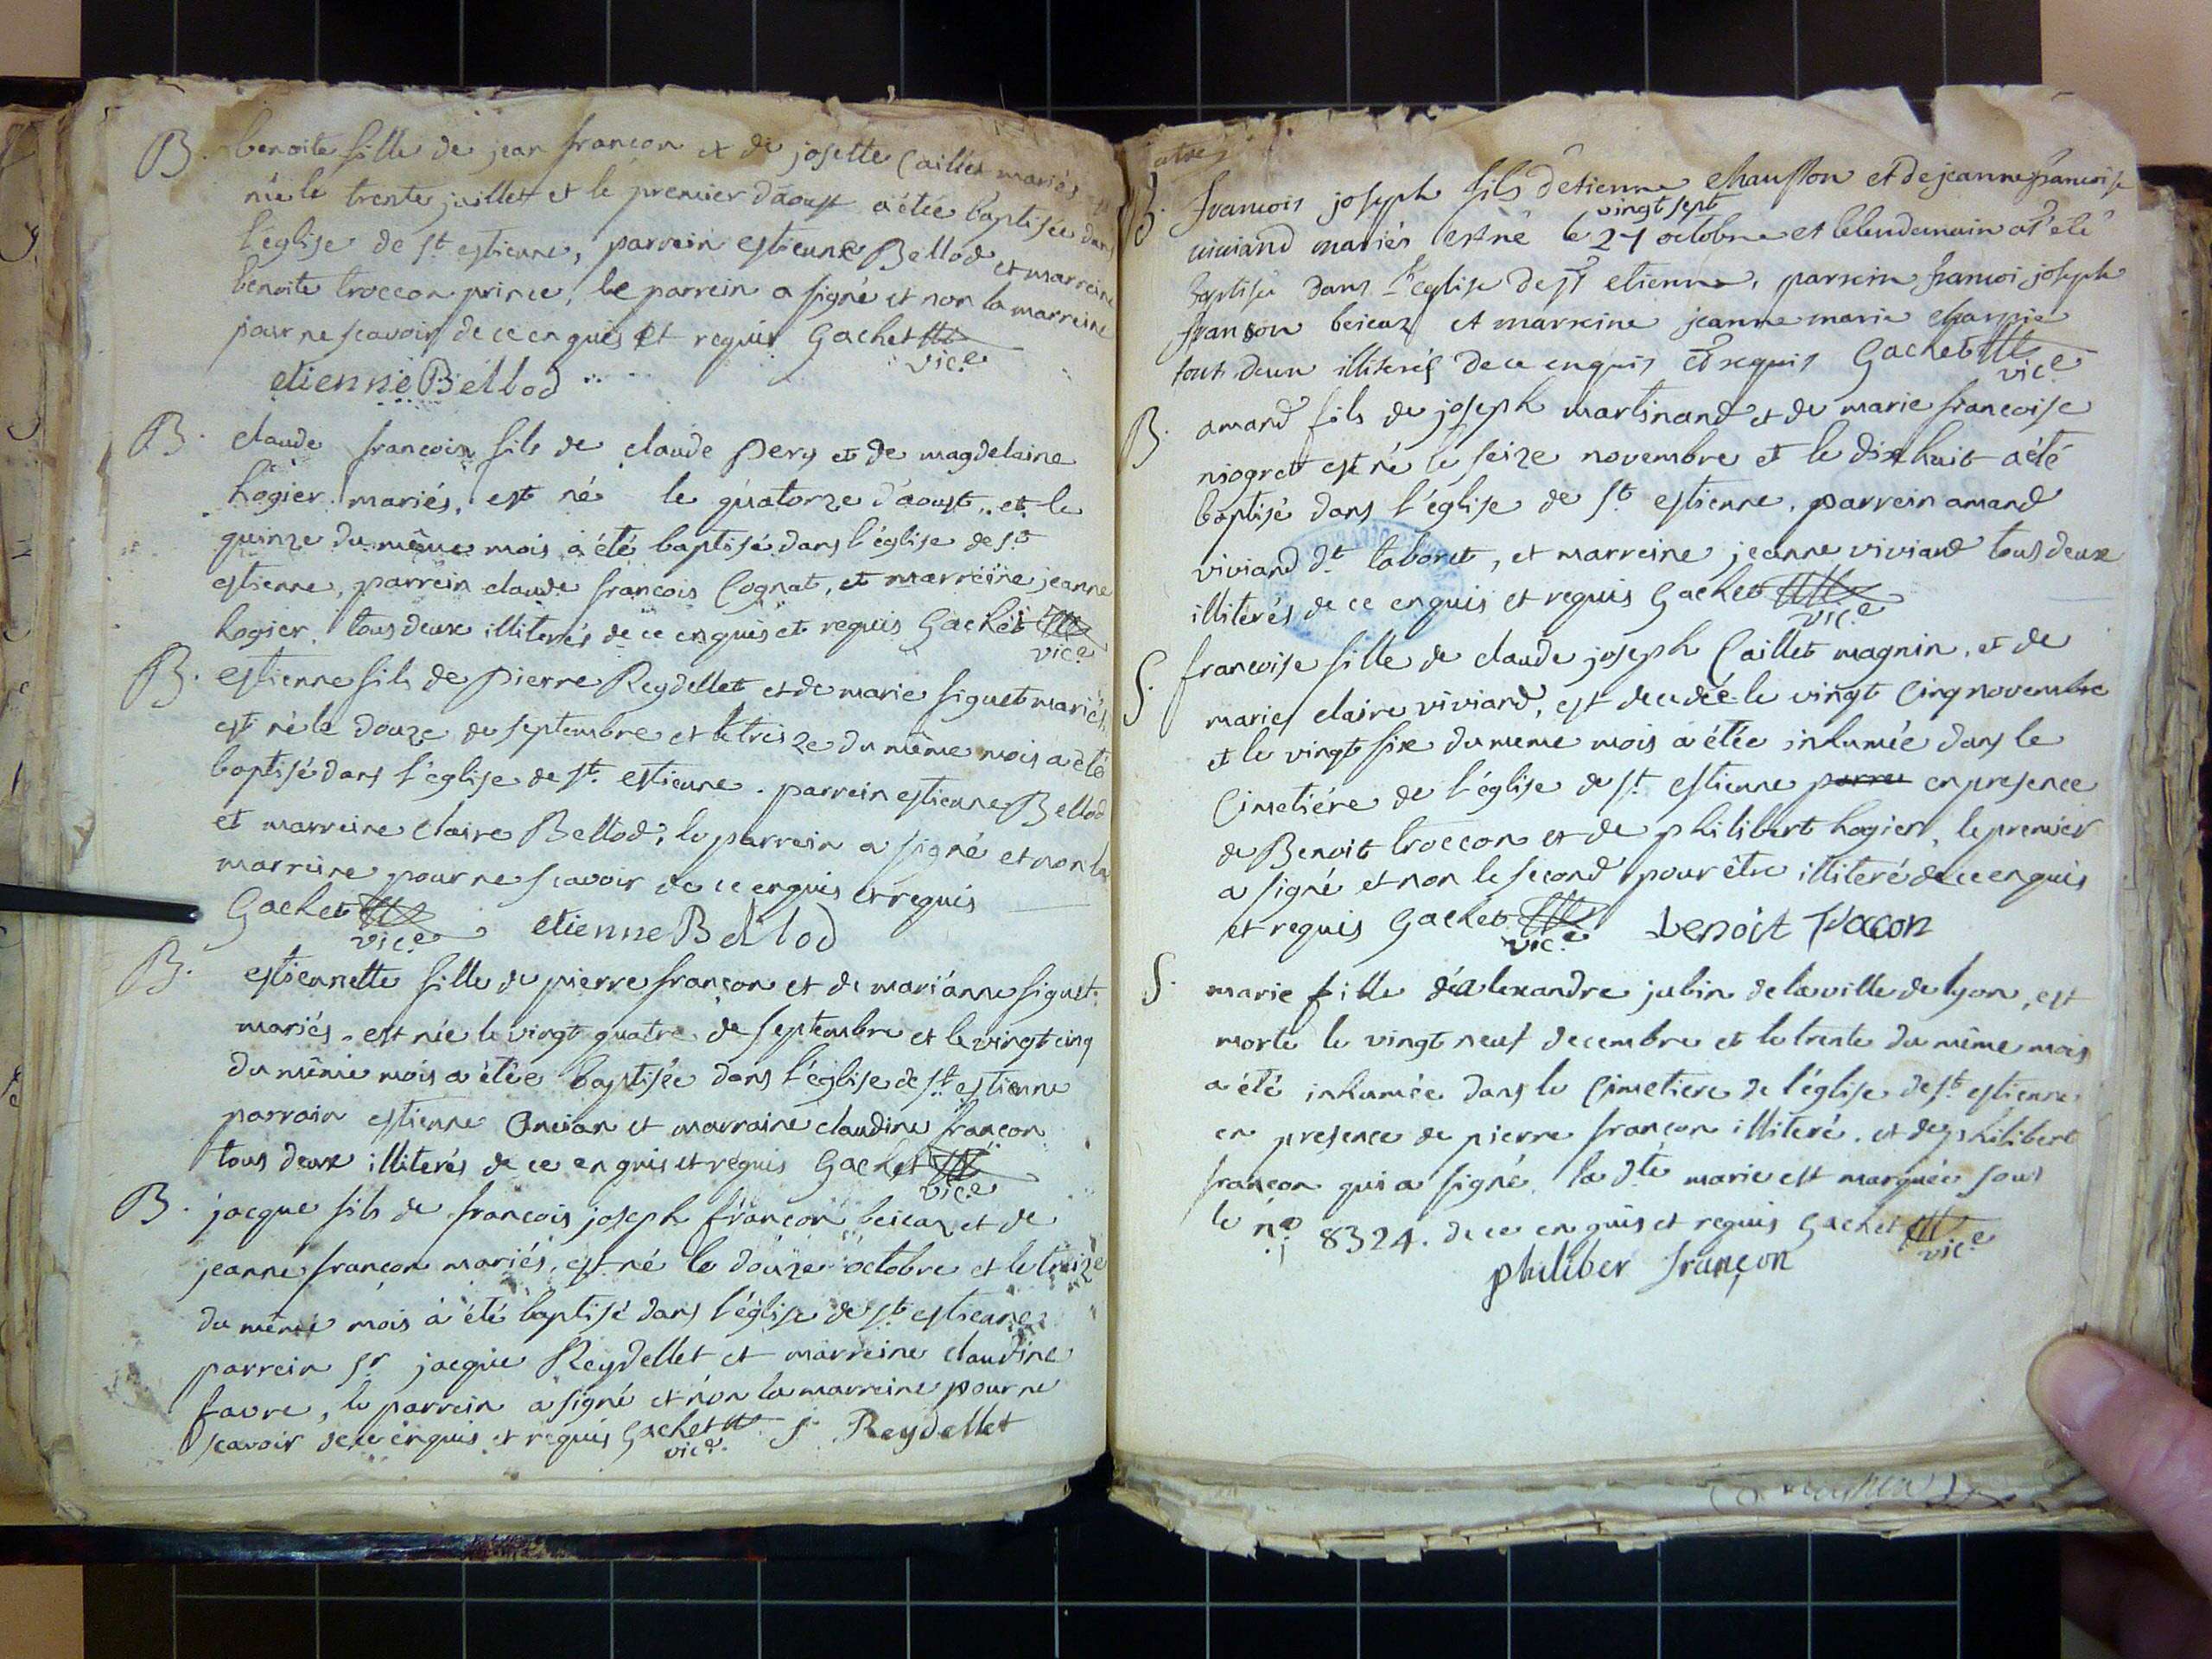 B. benoite fille de jean françon et de josette Caillet mariés
née le trente juillet et le premier d'aoust a étée baptisée dans
l'église de st estienne, parrein estienne Bellod et marreine
benoite troccon prince, le parrein a signé et non la marreine
pour ne scavoir de ce enquis et requis Gachet
vice
etienne Bellod
B. claude françois fils de claude pery et de magdelaine
hogier mariés, est né le quatorze d'aoust, et le
quinze du même mois a été baptisé dans l'église de st
estienne, parrein claude françois Cognat, et marreine jeanne
hogier, tous deux illiterés de ce enquis et requis Gachet
vice
B. estienne fils de pierre Reydellet et de marie siguet mariés
est né le douze de septembre et le treize du même mois a été
baptisé dans l'église de st. estienne. parrein estienne Bellod
et marreine claire Bellod, le parrein a signé et non la
marreine pour ne scavoir de ce enquis et requis
Gachet
vice etienne Bellod
B. estiennette fille de pierre françon et de marianne siguet
mariés. est née le vingt quatre de septembre et le vingt cinq
du même mois a étée baptisée dans l'église de st estienne
parrain estienne Ancian et marraine claudine françon
tous deux illiterés de ce enquis et requis Gachet
vice
B. jacque fils de francois joseph françon beicaz et de
jeanne françon mariés, est né le douze octobre et le treize
du même mois a été baptisé dans l'église de st estienne
parrein sr jacque Reydellet et marreine claudine
favre, le parrein a signé et non la marreine pour ne
scavoir de ce enquis et requis Gachet J Reydellet
vice
B. francois joseph fils detienne chausson et de jeanne francoise
vingt sept
viviand mariés est né le 27 octobre et le lendemain at été
baptisé dans l'eglise de st etienne, parrein francoi joseph
franson beicaz et marreine jeanne marie charpie
tout deux illiterés de ce enquis et requis Gachet
vice
B. amand fils de joseph martinand et de marie francoise
niogret est né le seize novembre et le dix huit a été
baptisé dans l'église de st estienne, parrein amand
viviand dt laboret, et marreine jeanne viviand tous deux
illiterés de ce enquis et requis Gachet
vice
S. francoise fille de claude joseph Caillet magnin, et de
marie claire viviand, est decedée le vingt cinq novembre
et le vingt six du meme mois a étée inhumée dans le
Cimetiére de l'église de st estienne parre en presence
de Benoit troccon et de philibert hogier, le premier
a signé et non le second pour être illiteré de ce enquis
et requis Gachet benoit tracon
vice
S. marie fille d'alexandre jubin de la ville de lyon, est
morte le vingt neuf decembre et le trente du même mois
a été inhumée dans le Cimetiere de l'église de st estienne
en presence de pierre françon illiteré. et de philibert
françon qui a signé. la dte marie est marquée sous
le no 8324. de ce enquis et requis Gachet
vice
philiber françon